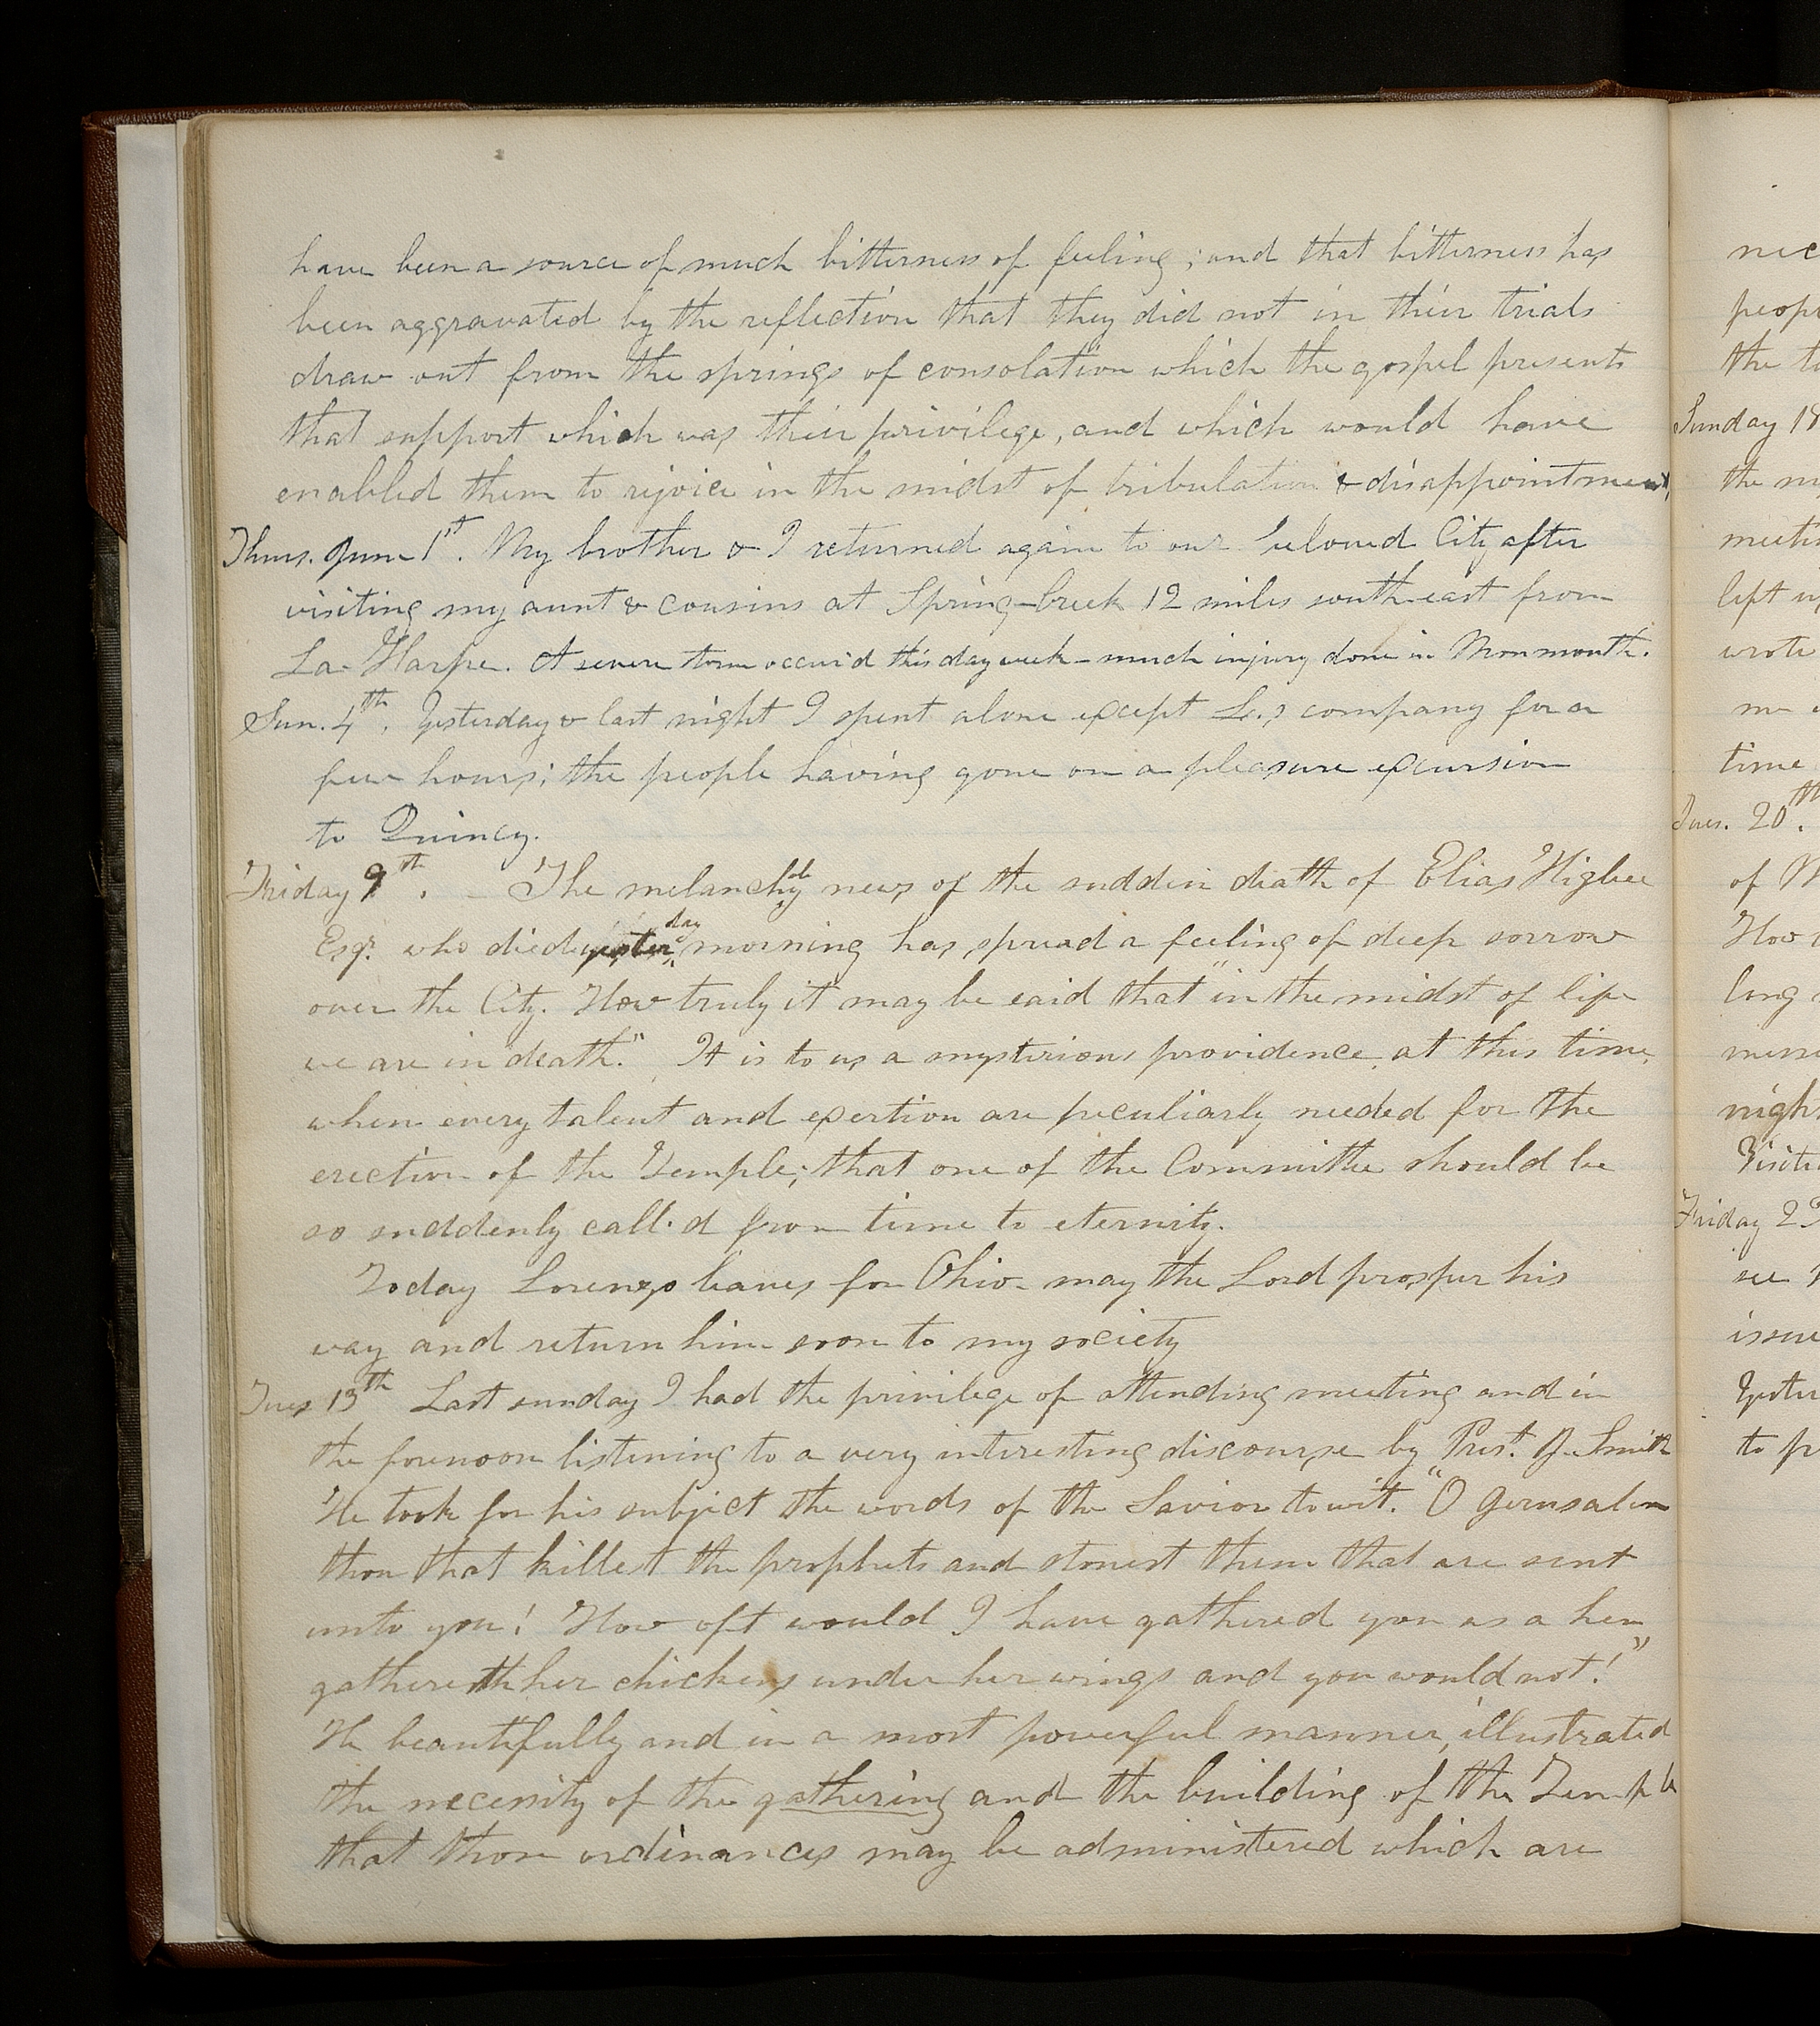 have been a source of much bitterness of feeling; and that bitterness has
been aggravated by the reflection that they did not in their trials
draw out from the springs of consolation which the gospel presents
that support which was their privilege, and which would have
enabled them to rejoice in the midst of tribulation & disappointment,
Thurs. June 1st. My brother & I returned again to our beloved City after
visiting my aunt & cousins at Spring-creek 12 miles south-east from
La-Harpe. A severe storm occur'd this day week - much injury done in Monmouth.
Sun. 4th. Yesterday & last night I spent alone except L.'s company for a
few hours; the people having gone on a pleasure excursion
to Quincy.
Friday 9th. - The melancholy news of the sudden death of Elias Higbee
Esqr. who died yesterday morning has spread a feeling of deep sorrow
over the City. How truly it may be said that "in the midst of life
we are in death." It is to us a mysterious providence, at this time,
when every talent and exertion are peculiarly needed for the
erection of the Temple; that one of the Committee should be
so suddenly call'd from time to eternity.
Today Lorenzo leaves for Ohio - may the Lord prosper his
way and return him soon to my society
Tues 13th Last sunday I had the privilege of attending meeting and in
the forenoon listening to a very interesting discourse by Prest. J. Smith
He took for his subject the words of the Savior towit. "O Jerusalem
thou that killest the prophets and stonest them that are sent
unto you! How oft would I have gathered you as a hen
gathereth her chickens under her wings and you would not!"
He beautifully and in a most powerful manner, illustrated
the necessity of the gathering and the building of the Temple
that those ordinances may be administered which are
peop
the
Sunday 18
the
left
wrote
time
Tues. 20th.
of
How
long
night
Friday 2
see
to